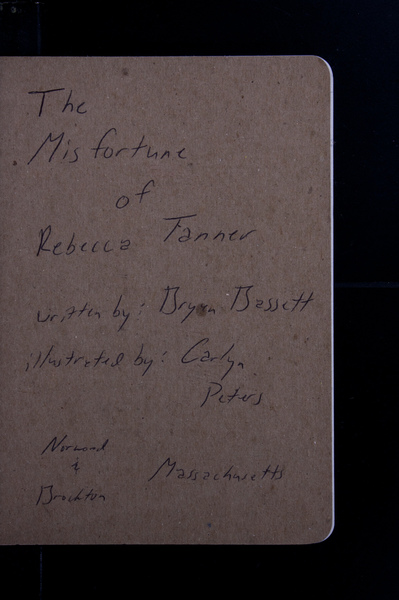 The
Misfortune
of
Rebecca Tanner
written by: Bryan Bassett
illustrated by: Carlyn
Peters
Norwood
&
Brockton
Massachusetts